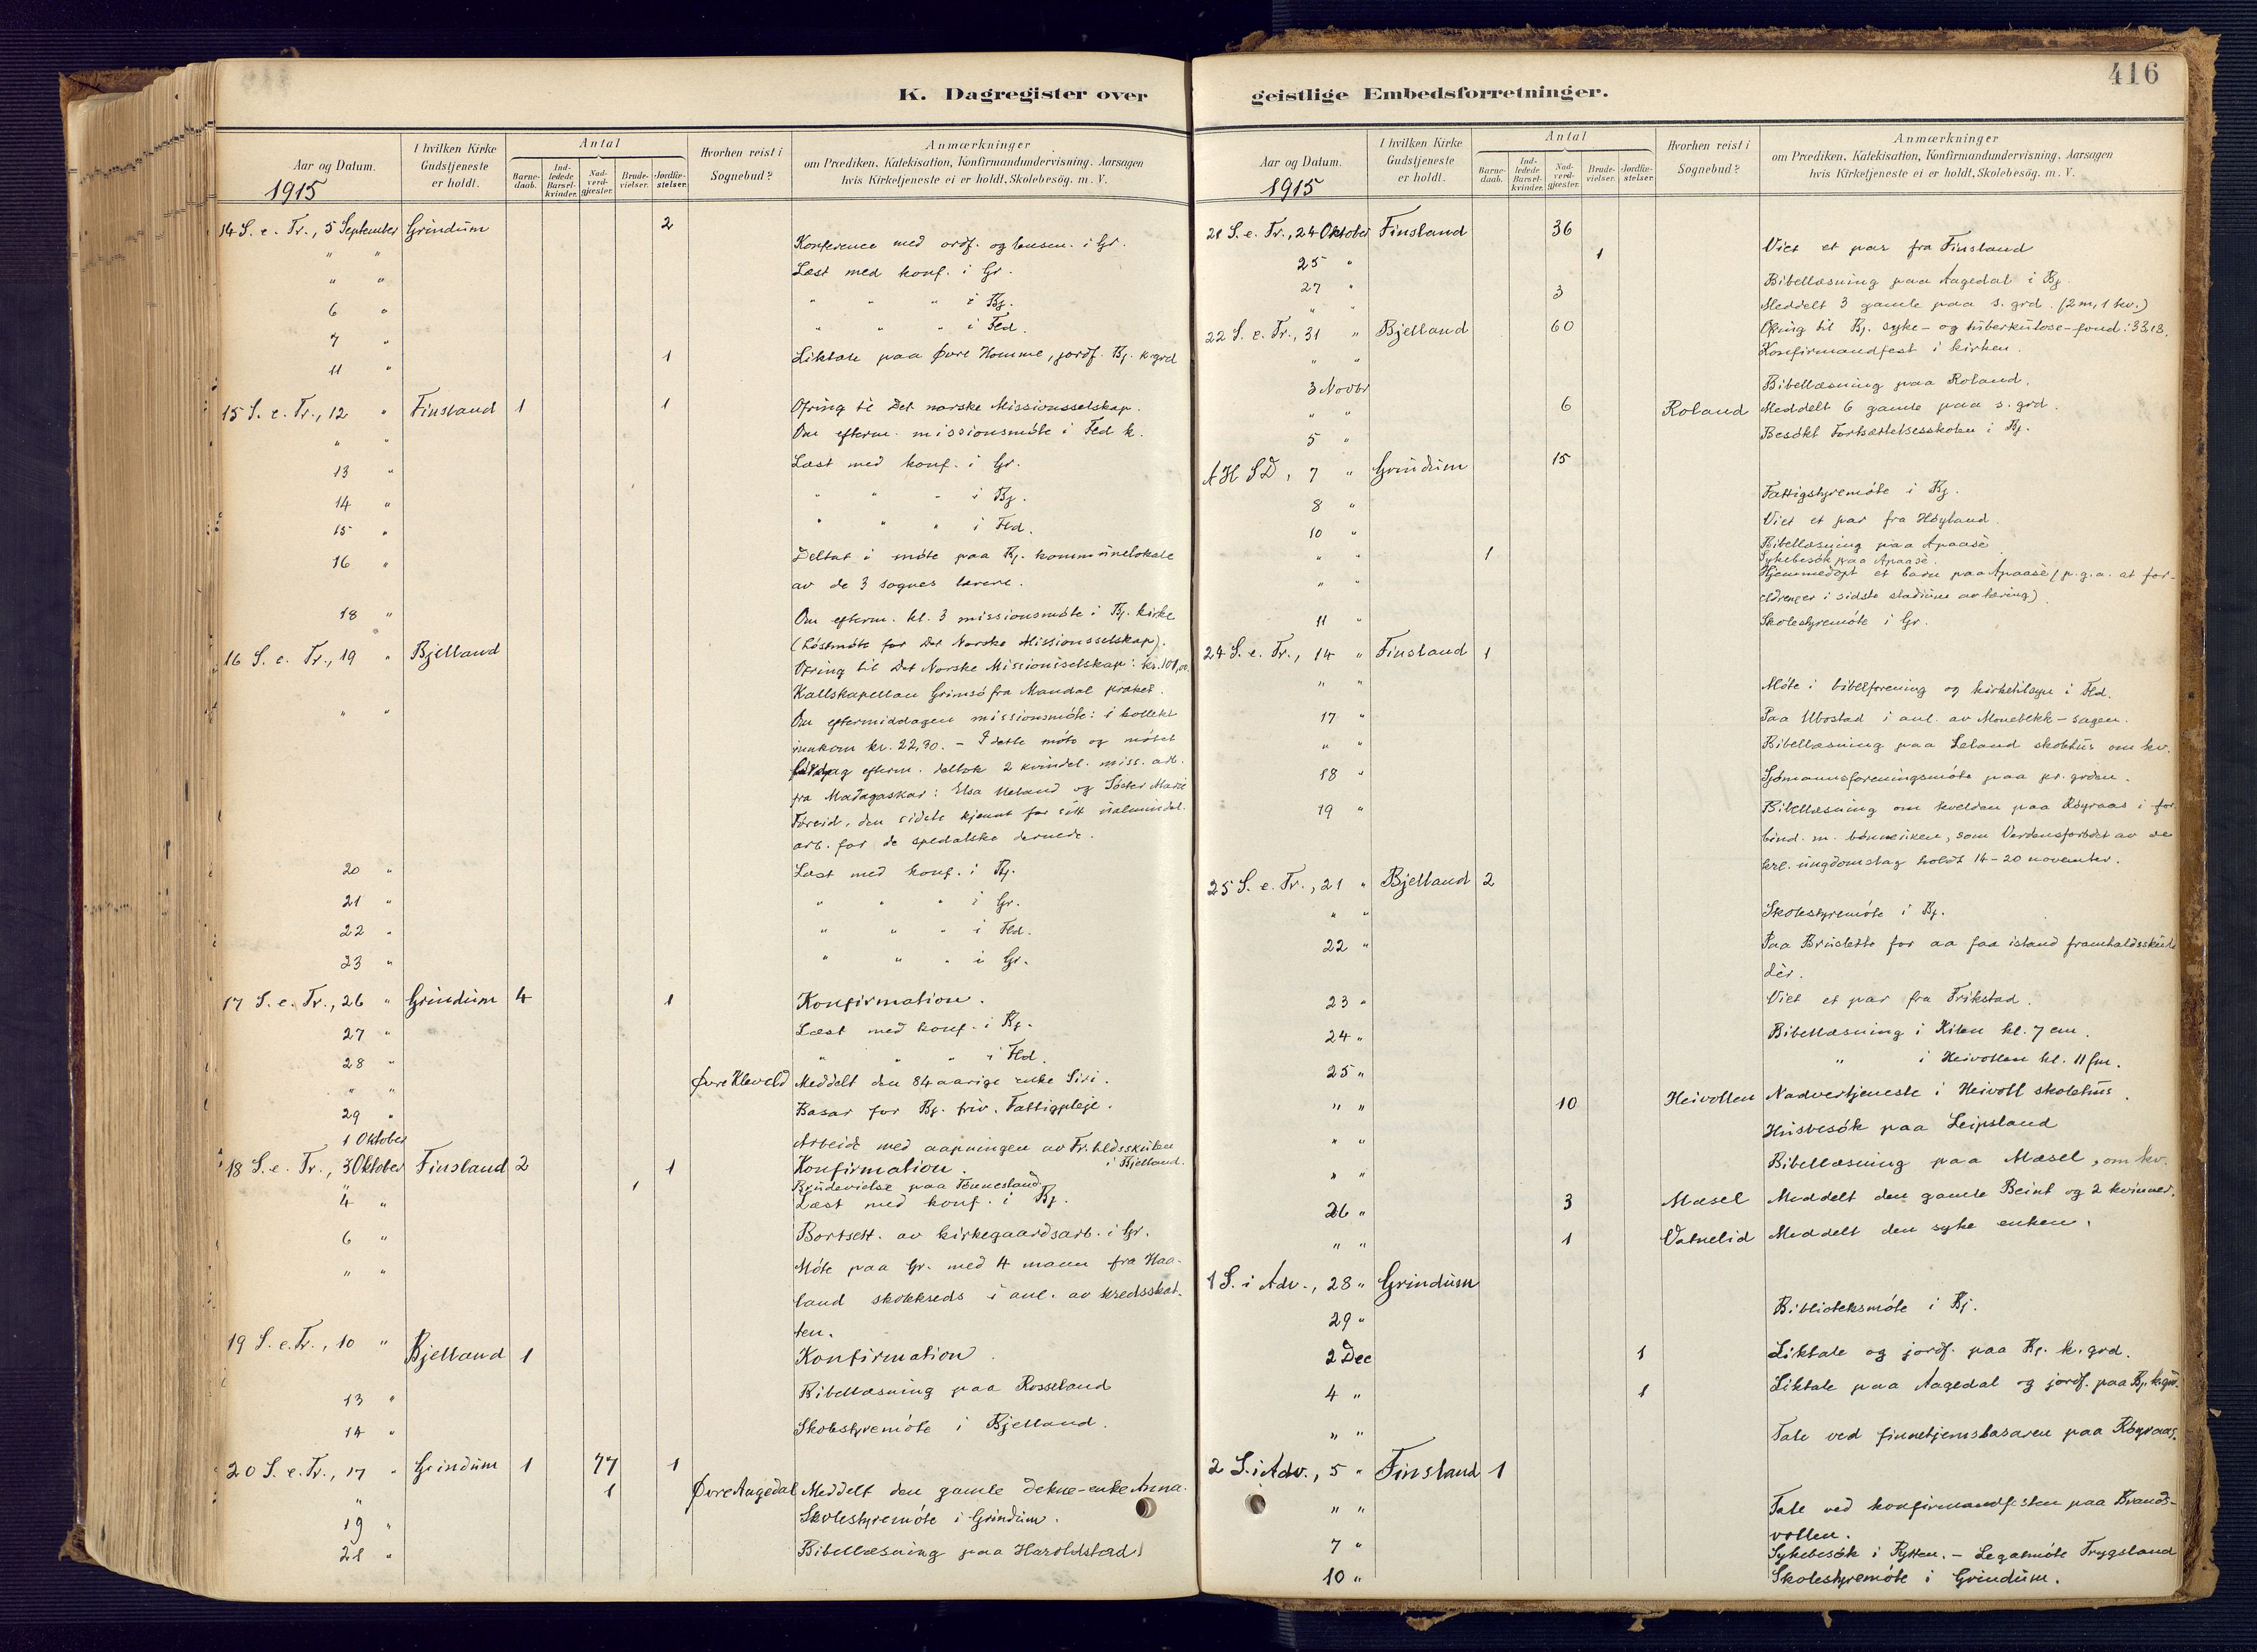 K. Dagregister over
Aar og Datum.
1915
I hvilken Kirke Gudstjeneste er holdt.
Antal
Barnedaab.
Indledede Barselkvinder.
Nadverdgjæster.
Brudevielser.
Jordfæstelser.
Hvorhen reist i Sognebud?
Anmærkninger
om Prædiken, Katekisation, Konfirmandundervisning, Aarsagen
hvis Kirketjeneste ei er holdt, Skolebesög. m. V.
14 S. e. Tr., 5 September Grindum 2
" " Konference med ordf. og lensm. i Gr.
" " Læst med konf. i Gr.
6 " " " " i Bj.
7 " " " " i Fld.
11 " 1 Liktale paa Øvre Homme, jordf. Bj. k.grd
15 S. e. Tr., 12 " Finsland 1 1 Ofring til Det norske Missionsselskap.
" " Om efterm. missionsmöte i Fld k.
13 " Læst med konf. i Gr.
14 " " " " i Bj.
15 " " " " i Fld.
16 " Deltat i möte paa Bj. kommunelokale
av de 3 sognes lærere.
18 " Om efterm. kl. 3 missionsmöte i Bj. kirke
(Löstmöte for Det Norske Missionsselskap).
16 S. e. Tr., 19 " Bjelland
Ofring til Det Norske Missionsselskap: kr. 101,00
Kallskapellan Grimsö fra Mandal præket.
" " Om eftermiddagen missionsmöte: i kollekt
innkom kr. 22,30. – I dette möte og mötet
lördag efterm. deltok 2 kvindel. miss. arb.
fra Madagaskar: Elsa Meland og Söster Marie
Føreid, den sidste kjennt for sitt ualmindel.
arb. for de spedalske dernede.
20 " Læst med konf. i Bj.
21 " " " " i Gr.
22 " " " " i Fld.
23 " " " " i Gr.
17 S. e. Tr., 26 " Grindum 4 1 Konfirmation.
27 " Læst med konf. i Bj.
28 " " " " i Fld.
" " Øvre Kleveld Meddelt den 84 aarige enke Siri.
29 " Basar for Bj. friv. Fattigpleje.
1 Oktober Arbeide med aapningen av Fr.hldsskulen
i Bjelland.
18 S. e. Tr., 3 Oktober Finsland 2 1 Konfirmation.
" 1 Brudevielse paa Tønnesland.
4 " Læst med konf. i Bj.
6 " Bortsett. av kirkegaardsarb. i Gr.
" " Möte paa Gr. med 4 mann fra Haa-
land skolkreds i anl. av kredsskat-
ten.
19 S. e. Tr., 10 " Bjelland 1 Konfirmation.
13 " Bibellæsning paa Rosseland
14 " Skolestyremöte i Bjelland.
20 S. e. Tr., 17 " Grindum 1 77 1
" 1 Øvre Aagedal Meddelt den gamle dekne-enke Anna.
19 " Skolestyremöte i Grindum.
21 " Bibellæsning paa Haroldstad
416
geistlige Embedsforretninger.
Aar og Datum.
1915
I hvilken Kirke Gudstjeneste er holdt.
Antal
Barnedaab.
Indledede Barselkvinder.
Nadverdgjæster.
Brudevielser.
Jordfæstelser.
Hvorhen reist i Sognebud?
Anmærkninger
om Prædiken, Katekisation, Konfirmandundervisning, Aarsagen
hvis Kirketjeneste ei er holdt, Skolebesög. m. V.
21 S. e. Tr., 24 Oktober Finsland 36
25 " 1 Viet et par fra Finsland
27 " Bibellæsning paa Aagedal i Bj.
" " 3 Meddelt 3 gamle paa s. grd. (2 m, 1 kv.)
22 S. e. Tr., 31 " Bjelland 60 Ofring til Bj. syke- og tuberkulose-fond: 33,13.
" " Konfirmandfest i kirken.
3 Novbr Bibellæsning paa Roland.
" " 6 Roland Meddelt 6 gamle paa s. grd.
5 " Besökt Fortsættelsesskolen i Bj.
A H S D, 7 " Grindum 15
8 " Fattigstyremöte i Bj.
10 " Viet et par fra Höyland.
" " 1 Bibellæsning paa Apaasè
Sykebesök paa Apaasè.
" " Hjemmedöpt et barn paa Apaasè (p. g. a. at for-
eldrene er i sidste stadium av tæring)
11 " Skolestyremöte i Gr.
24 S. e. Tr., 14 " Finsland 1
" " Möte i bibelforening og kirketilsyn i Fld.
17 " Paa Ubostad i anl. av Monebekk-sagen.
" " Bibellæsning paa Leland skolhus om kv.
18 " Sjömannsforeningsmöte paa pr. grden.
19 " Bibellæsning om kvelden paa Röyraas i for-
bind. m. bönneuken, som Verdensforbdet av de
krl. ungdomslag holdt 14–20 november.
25 S. e. Tr., 21 " Bjelland 2
" " Skolestyremöte i Bj.
22 " Paa Bruslette for aa faa istand framhaldsskule
dèr.
23 " Viet et par fra Frikstad.
24 " Bibellæsning i Kilen kl. 7 em.
25 " " i Heivollen kl. 11 fm.
" " 10 Heivollen Nadvertjeneste i Heivoll skolehus.
" " Husbesök paa Leipsland
" " Bibellæsning paa Mæsel, om kv.
26 " 3 Mæsel Meddelt den gamle Beint og 2 kvinner.
" " 1 Vatnelid Meddelt den syke enken.
1 S. i Adv., 28 " Grindum
29 " Biblioteksmöte i Bj.
2 Dec 1 Liktale og jordf. paa Bj. k. grd.
4 " 1 Liktale paa Aagedal og jordf. paa Bj. k.grd.
" " Tale ved finnehjemsbasaren paa Röyraas.
2 S. i Adv., 5 " Finsland 1
" " Tale ved konfirmandfesten paa Brands-
vollen.
7 " Sykebesök i Rytten. – Legatmöte Trygsland
10 " Skolestyremöte i Grindum.